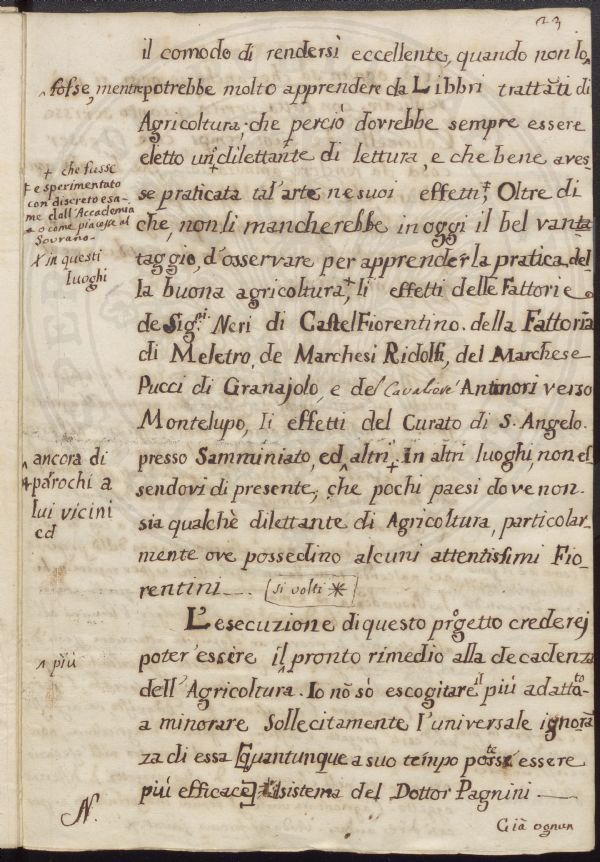 23
il comodo di rendersi eccellente, quando non lo
^ fosse, mentre potrebbe molto apprendere da Libbri trattati di
Agricoltura; che perciò dovrebbe sempre essere
eletto un dilettante di lettura, e che bene aves-
se praticata tal'arte ne suoi effetti; Oltre di
che, non li mancherebbe in oggi il bel vanta-
taggio, d'osservare per apprender la pratica del-
la buona agricoltura, li effetti delle Fattorie
de Sig.ri Neri di Castel Fiorentino. della Fattoria
di Meletro, de Marchesi Ridolfi, del Marchese
Pucci di Granajolo, e del Cavaliere Antinori verso
Montelupo, li effetti del Curato di S. Angelo.
presso Samminiato, ed ^ altri + in altri luoghi, non es-
sendovi di presente, che pochi paesi dove non
sia qualchè dilettante di Agricoltura, particolar-
mente ove possedino alcuni attentissimi Fio-
rentini (si volti *)
L'esecuzione di questo progetto crederej
poter' essere il ^ pronto rimedio alla decadenza
dell'Agricoltura. Io nõ sò escogitare il più adatto
a minorare sollecitamente l'universale ignorã-
za di essa [quantunque a suo tempo essere
più efficace] il sistema del Dottor Pagnini
Già ognun
+ che fusse
e sperimentato
con discreto esa-
me dall'Accademia
o come piacesse al
Sovrano.
X in questi
luoghi
^ ancora di
+ parochi a
lui vicini
ed
^ più
N.